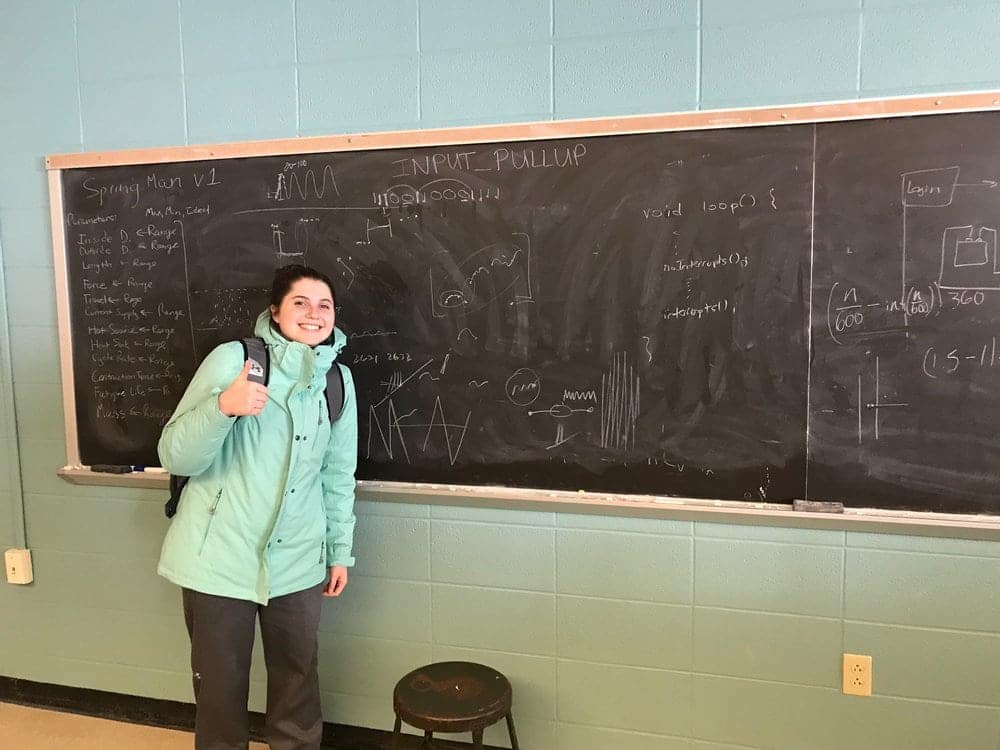 Spring Man v1
Parameters: Max, Min, Ideal
Inside D. ← Range
Outside D. ← Range
Length ← Range
Force ← Range
Travel ← Range
Current Supply ← Range
Heat Source ← Range
Heat Sink ← Range
Cycle Rate ← Range
Fatigue Life ←
Range
20-100
INPUT_PULLUP
2631 2632
void loop() {
noInterrupts();
interrupts();
}
Login
(n/600 - int(n/600)) 360
(1.5-1